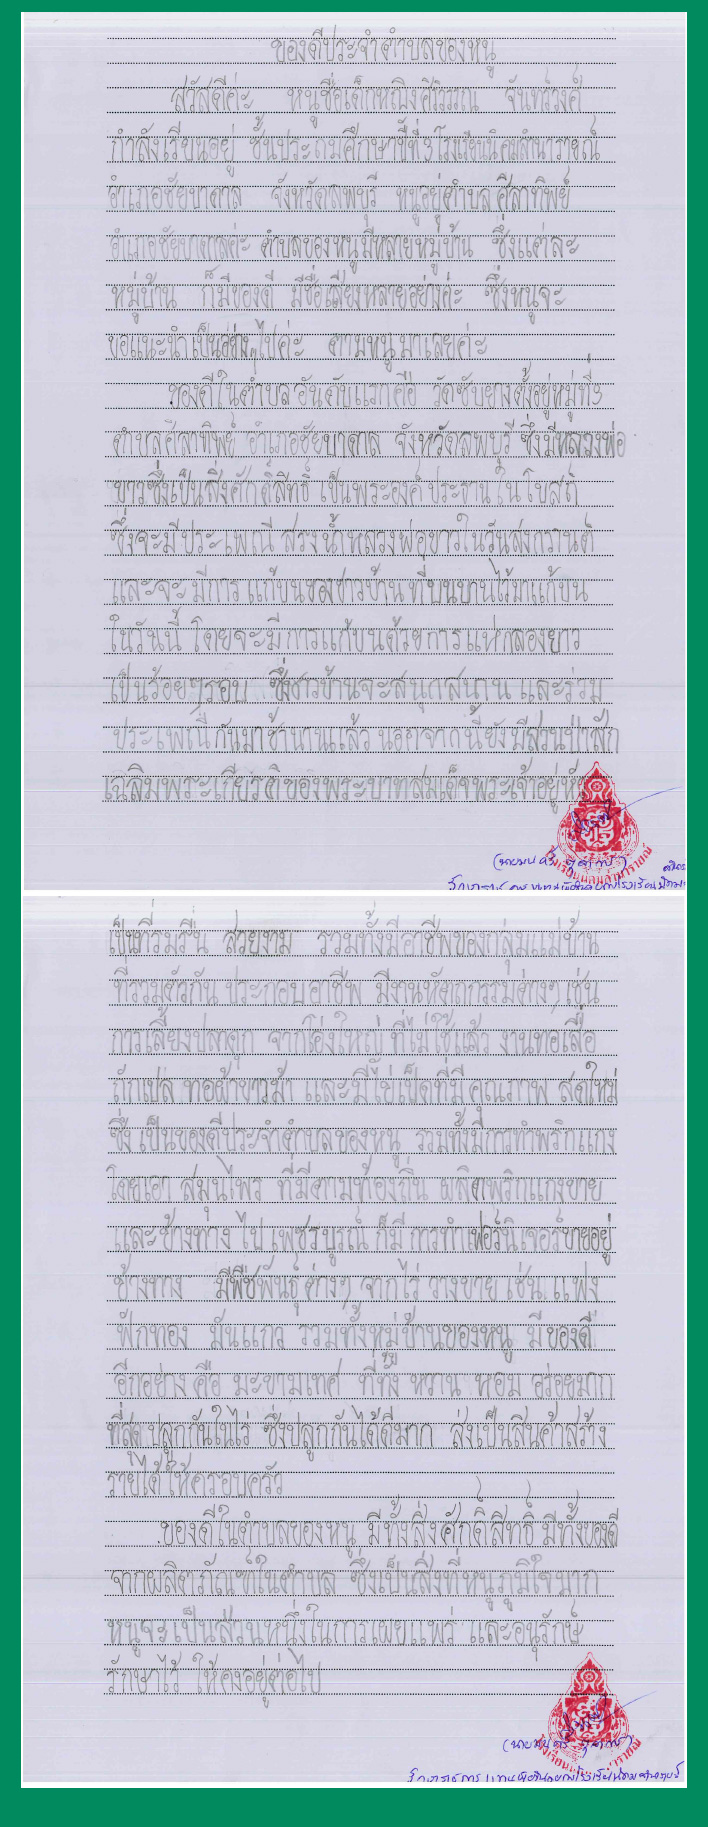 ของดีประจำตำบลของหนู
สวัสดีค่ะ หนูชื่อเด็กหญิงศิริวรรณ จันทร์วงศ์
กำลังเรียนอยู่ ชั้นประถมศึกษาปีที่3 โรงเรียนนิคมลำนารายณ์
อำเภอชัยบาดาล จังหวัดลพบุรี หนูอยู่ตำบล ศิลาทิพย์
อำเภอชัยบาดาลค่ะ ตำบลของหนูมีหลายหมู่บ้าน ซึ่งแต่ละ
หมู่บ้าน ก็มีของดี มีชื่อเสียงหลายอย่างค่ะ ซึ่งหนูจะ
ขอแนะนำเป็นอย่างๆไปค่ะ ตามหนูมาเลยค่ะ
ของดีในตำบล อันดับแรกคือ วัดซับยางตั้งอยู่หมู่ที่3
ตำบลศิลาทิพย์ อำเภอชัยบาดาล จังหวัดลพบุรี ซึ่งมีหลวงพ่อ
ขาวซึ่งเป็นสิ่งศักดิ์สิทธิ์ เป็นพระองค์ประธานในโบสถ์
ซึ่งจะมีประเพณี สรงน้ำหลวงพ่อขาวในวันสงกรานต์
และจะ มีการ แก้บนของชาวบ้าน ที่บนบานไว้มาแก้บน
ในวันนี้ โดยจะมี การแก้บนด้วยการแห่กลองยาว
เป็นร้อยๆรอบ ซึ่งชาวบ้านจะสนุกสนาน และร่วม
ประเพณีกันมาช้านานแล้ว นอกจากนี้ยังมีสวนป่าสัก
เฉลิมพระเกียรติของพระบาทสมเด็จพระเจ้าอยู่หัว
เป็นที่ร่มรื่น สวยงาม รวมทั้งมีอาชีพของกลุ่มแม่บ้าน
ที่รวมตัวกัน ประกอบอาชีพ มีงานหัตถกรรมต่างๆ เช่น
การเลี้ยงปลาดุก จากโอ่งใหญ่ ที่ไม่ใช้แล้ว งานทอเสื่อ
ถักเปล ทอผ้าขาวม้า และมีไข่เป็ดที่มีคุณภาพ สดใหม่
ซึ่ง เป็นของดีประจำตำบลของหนู รวมทั้งมีการทำพริกแกง
โดยเอา สมุนไพร ที่มีตามท้องถิ่น ผลิตพริกแกงขาย
และข้างทาง ไปเพชรบูรณ์ ก็มี การทำเฟอร์นิเจอร์ขายอยู่
ข้างทาง มีพืชพันธุ์ต่างๆ จากไร่ วางขาย เช่น แฟง
ฟักทอง มันแกว รวมทั้งหมู่บ้านของหนู มีของดี
อีกอย่าง คือ มะขามเทศ ที่ทั้ง หวาน หอม อร่อยมาก
ที่สุด ปลูกกันในไร่ ซึ่งปลูกกันได้ดีมาก ส่งเป็นสินค้าสร้าง
รายได้ให้ครอบครัว
ของดีในตำบลของหนู มีทั้งสิ่งศักดิ์สิทธิ์ มีทั้งของดี
จากผลิตภัณฑ์ในตำบล ซึ่งเป็นสิ่งที่หนูภูมิใจมาก
หนูจะเป็นส่วนหนึ่งในการเผยแพร่ และอนุรักษ์
รักษาไว้ ให้คงอยู่ต่อไป